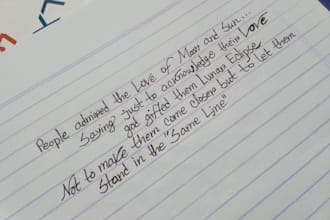 People admired the Love of Moon and Sun...
Saying Just to acknowledge their Love
god gifted them Lunar Eclipse
Not to make them come closer but to let them
Stand in the "Same Line"